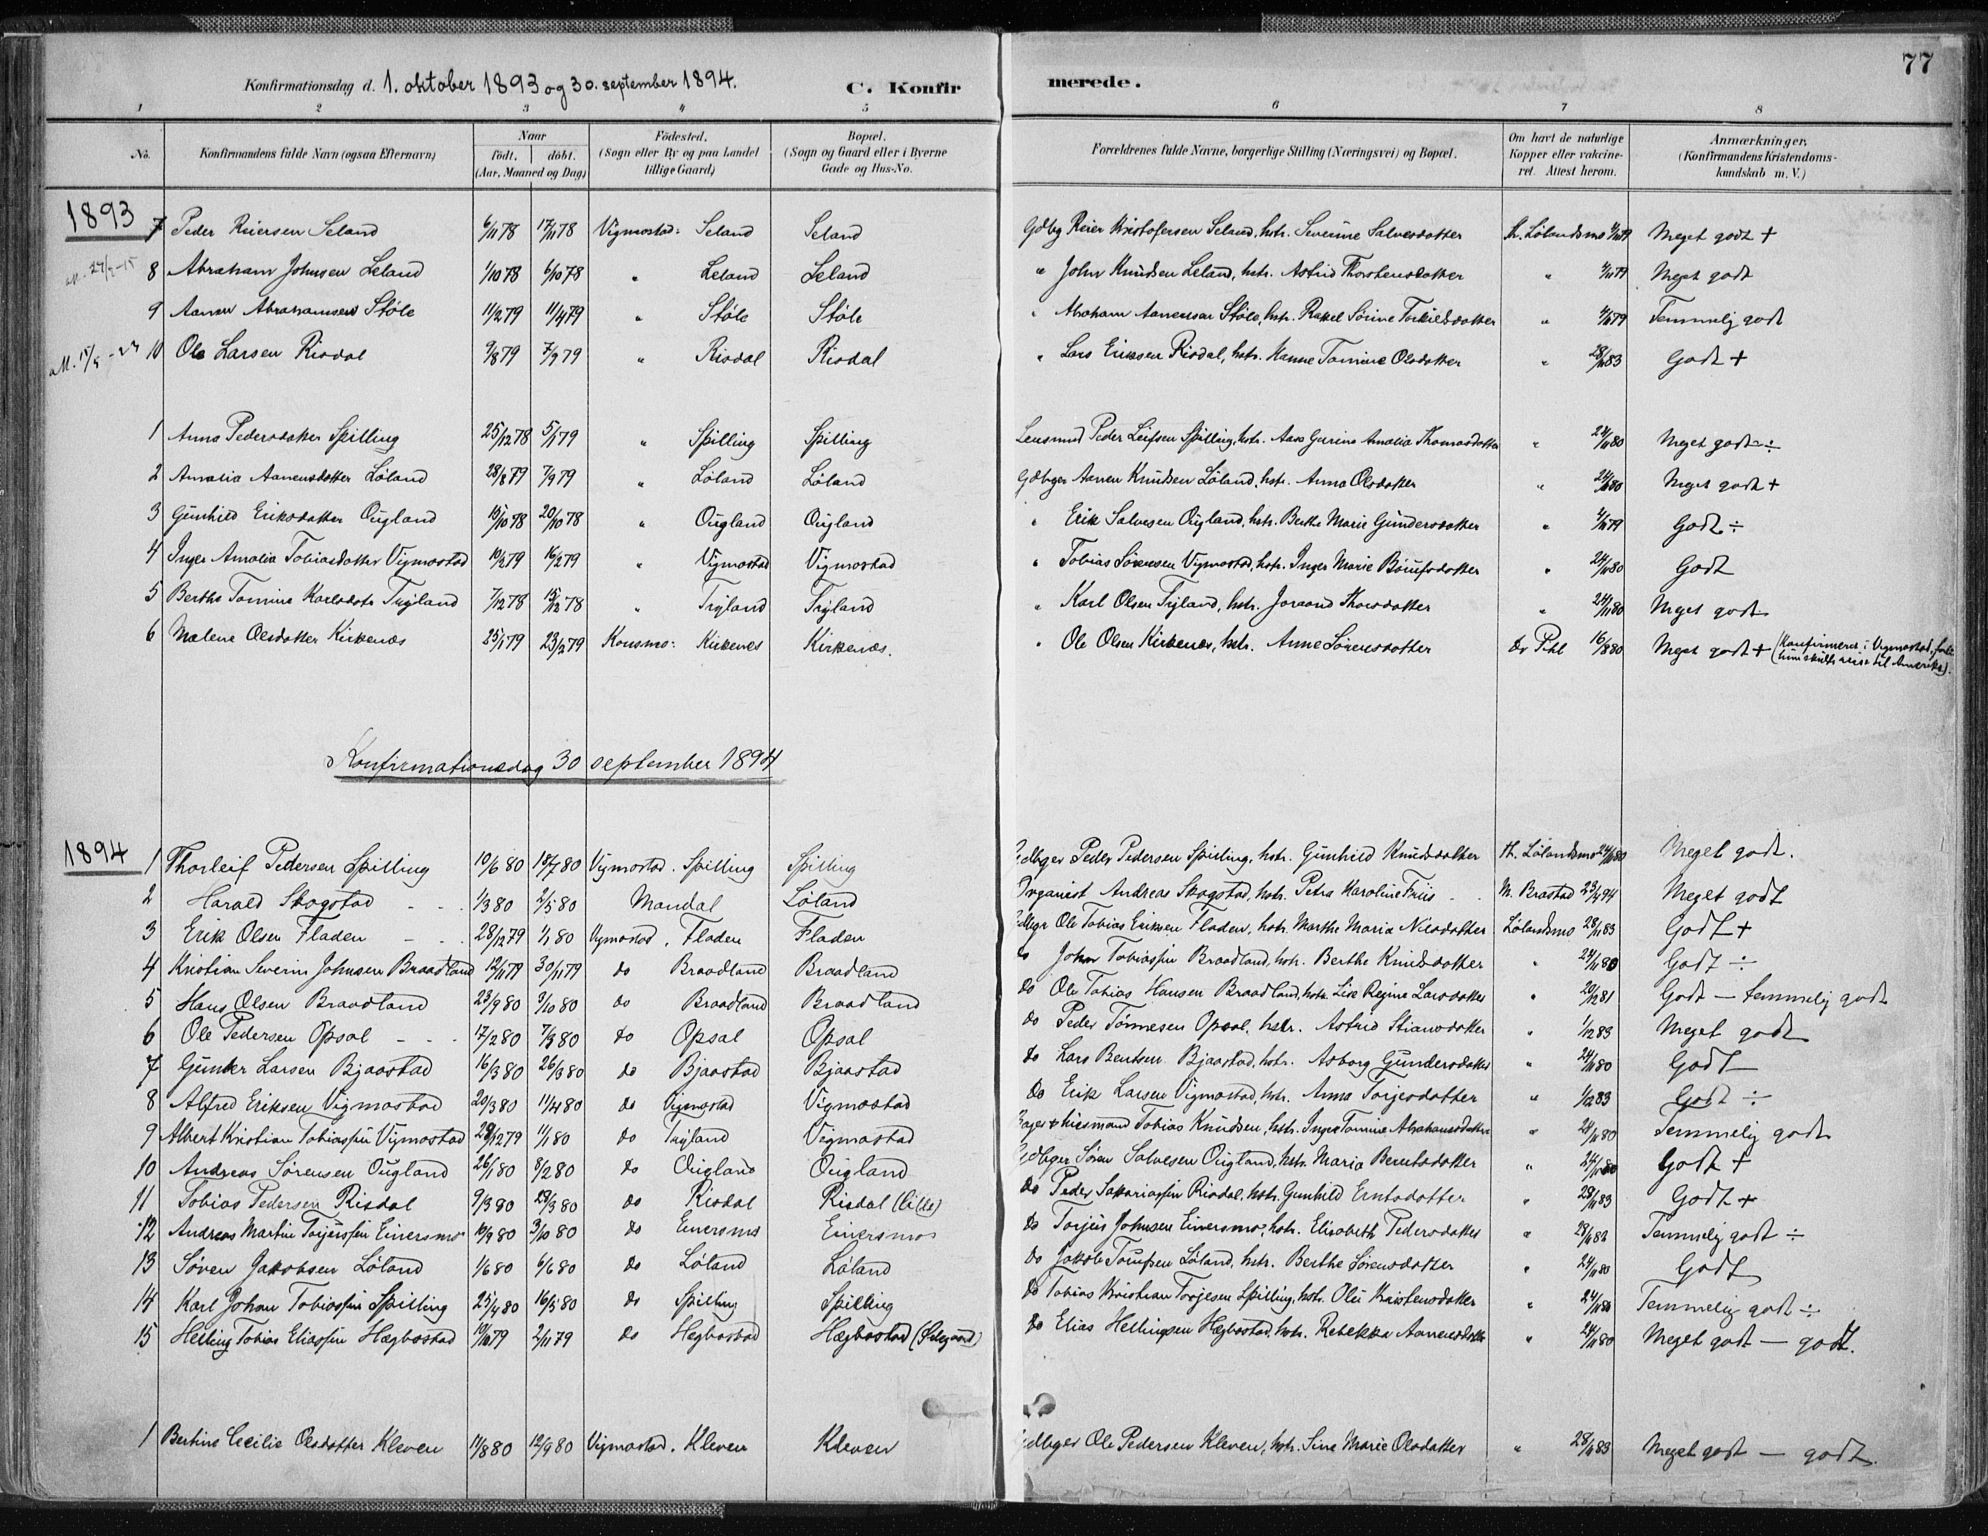 77
Konfirmationsdag d. 1. oktober 1893 og 30. september 1894. C. Konfirmerede.
1 2 3 4 5 6 7 8
No. Konfirmandens fulde Navn (ogsaa Efternavn) Naar født. døbt. (Aar, Maaned og Dag) Fødested. (Sogn eller By og paa Landet tillige Gaard) Bopæl. (Sogn og Gaard eller i Byerne Gade og Hus-No. Forældrenes fulde Navne, borgerlige Stilling (Næringsvei) og Bopæl. Om havt de naturlige Kopper eller vakcineret. Attest herom. Anmærkninger, (Konfirmandens Kristendomskundskab m. V.)
1893
7 Peder Reiersen Seland 6/11 78 17/11 78 Vigmostad: Seland Seland Gdbg Reier Kristofersen Seland, hstr. Severine Salvesdatter Th. Lølandsmo 4/11 79 Meget godt +
8 Abraham Johnsen Leland 1/10 78 6/10 78 " Leland Leland " John Knudsen Leland, hstr. Astrid Thorstensdatter " 4/11 79 Meget godt
9 Aanen Abrahamsen Støle 11/2 79 11/4 79 " Støle Støle " Abraham Aanensen Støle, hstr. Rakel Sørine Torkildsdatter " 4/11 79 Temmelig godt
10 Ole Larsen Risdal 9/8 79 7/9 79 " Risdal Risdal " Lars Eriksen Risdal, hstr. Hanne Tomine Olsdatter " 28/11 83 Godt +
1 Anna Pedersdatter Spilling 25/12 78 5/1 79 " Spilling Spilling Lensmnd Peder Leifsen Spilling, hstr. Aasa Gurine Amalia Thomasdatter " 24/11 80 Meget godt ÷
2 Amalia Aanensdatter Løland 28/8 79 7/9 79 " Løland Løland Gdbger Aanen Knudsen Løland, hstr. Anna Olsdatter " 24/11 80 Meget godt +
3 Gunhild Eriksdatter Ougland 15/10 78 20/10 78 " Ougland Ougland " Erik Salvesen Ougland, hstr. Berthe Marie Gundersdatter " 4/11 79 Godt ÷
4 Inger Amalia Tobiasdatter Vigmostad 10/2 79 16/2 79 " Vigmostad Vigmostad " Tobias Sørensen Vigmostad, hstr. Inger Marie Børufsdatter " 24/11 80 Godt
5 Berthe Tomine Karlsdatr Tryland 7/12 78 15/12 78 " Tryland Tryland " Karl Olsen Tryland, hstr. Joraand Thorsdatter " 24/11 80 Meget godt
6 Malene Olsdatter Kirkenæs 25/1 79 23/2 79 Konsmo: Kirkenes Kirkenæs. " Ole Olsen Kirkenæs, hstr. Anne Sørensdatter Dr Pihl 16/8 80 Meget godt + (Konfirmeret i Vigmostad, fordi hun skulde reise til Amerika).
Konfirmationsdag 30 september 1894
1894
1 Thorleif Pedersen Spilling 10/6 80 18/7 80 Vigmostad. Spilling Spilling Gdbger Peder Pedersen Spilling, hstr. Gunhild Knudsdatter Th. Lølandsmo 24/11 80 Meget godt.
2 Harald Skogstad 1/3 80 2/5 80 Mandal Løland Organist Andreas Skogstad, hstr. Petra Karoline Friis M. Brastad 23/4 94 Meget godt
3 Erik Olsen Fladen 28/12 79 1/1 80 Vigmostad. Fladen Fladen Gdbgr Ole Tobias Eriksen Fladen, hstr. Marthe Maria Nilsdatter Lølandsmo 28/11 83 Godt +
4 Kristian Severin Johnsen Braadland 12/11 79 30/11 79 do Braadland Braadland do John Tobiassen Braadland, hstr. Berthe Knudsdatter " 24/11 80 Godt ÷
5 Hans Olsen Braadland 23/9 80 3/10 80 do Braadland Braadland do Ole Tobias Hansen Braadland, hstr. Lise Regine Larsdatter " 20/12 81 Godt — temmelig godt
6 Ole Pedersen Opsal 17/2 80 7/3 80 do Opsal Opsal do Peder Tønnesen Opsal, hstr. Astrid Stiansdatter " 1/12 83 Meget godt
7 Gunder Larsen Bjaastad 16/3 80 26/3 80 do Bjaastad Bjaastad do Lars Bentsen Bjaastad, hstr. Asborg Gundersdatter " 24/11 80 Godt
8 Alfred Eriksen Vigmostad 20/3 80 11/4 80 do Vigmostad Vigmostad do Erik Larsen Vigmostad, hstr. Anna Torjesdatter " 1/12 83 Godt ÷
9 Albert Kristian Tobiassen Vigmostad 28/12 79 11/1 80 do Tryland Vigmostad Tobias Knudsen, hstr. Inger Tomine Abrahamsdatter " 24/11 80 Temmelig godt
10 Andreas Sørensen Ougland 26/1 80 8/2 80 do Ougland Ougland Gdbger Søren Salvesen Ougland, hstr. Maria Berntsdatter " 24/11 80 Godt +
11 Tobias Pedersen Risdal 9/3 80 29/3 80 do Risdal Risdal (Lille) do Peder Sakariassen Risdal, hstr. Gunhild Erntsdatter " 28/11 83 Godt +
12 Andreas Martin Torjussen Einersmo 10/9 80 3/10 80 do Einersmo Einersmo do Torjus Johnsen Einersmo, hstr. Elisabeth Pedersdatter " 28/11 83 Temmelig godt ÷
13 Søren Jakobsen Løland 1/6 80 6/6 80 do Løland Løland do Jakob Toufsen Løland, hstr. Berthe Sørensdatter " 24/11 80 Godt
14 Karl Johan Tobiassen Spilling 25/4 80 16/5 80 do Spilling Spilling do Tobias Kristian Torjesen Spilling, hstr. Oli Kristensdatter " 24/11 80 Temmelig godt ÷
15 Helling Tobias Eliassen Hægbostad 10/10 79 2/11 79 do Hegbostad Hægbostad (Ødegaard) do Elias Hellingsen Hægbostad, hstr. Rebekka Aanensdatter " 24/11 80 Meget godt — godt.
1 Bertine Cecilie Olsdatter Kleven 11/8 80 12/9 80 Vigmostad. Kleven Kleven Gdbger Ole Pedersen Kleven, hstr. Sine Marie Olsdatter " 28/11 83 Meget godt — godt.